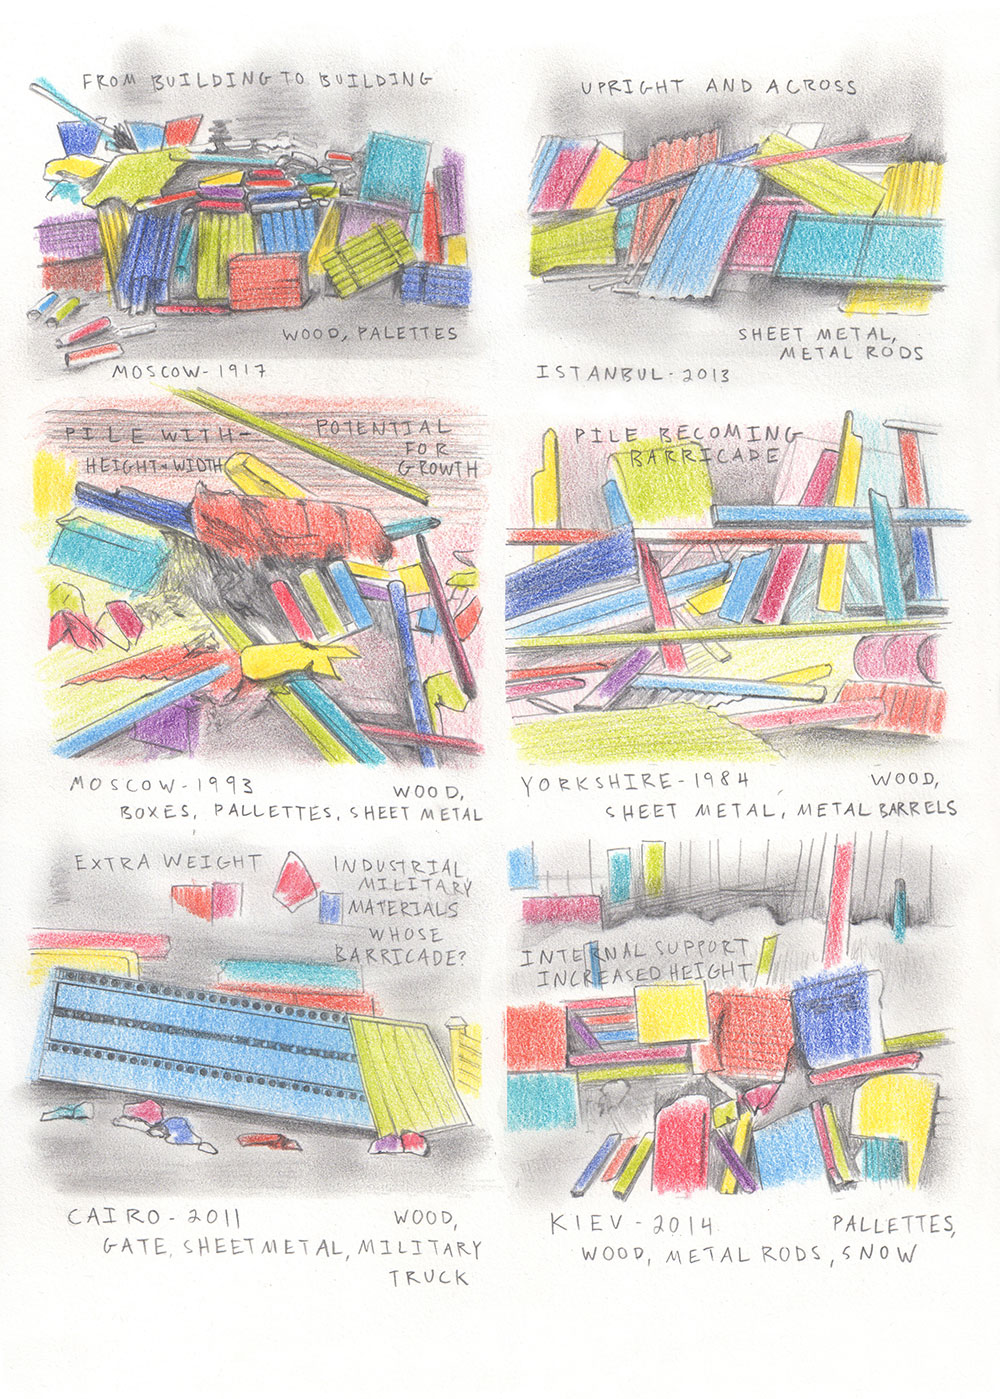 FROM BUILDING TO BUILDING
WOOD, PALETTES
MOSCOW-1917
UPRIGHT AND ACROSS
SHEET METAL,
METAL RODS
ISTANBUL-2013
PILE WITH-
HEIGHT+WIDTH
POTENTIAL
FOR
GROWTH
MOSCOW-1993
WOOD,
BOXES, PALLETTES, SHEET METAL
PILE BECOMING
BARRICADE
YORKSHIRE-1984
WOOD,
SHEET METAL, METAL BARRELS
EXTRA WEIGHT
INDUSTRIAL,
MILITARY
MATERIALS
WHOSE
BARRICADE?
CAIRO-2011
WOOD,
GATE, SHEET METAL, MILITARY
TRUCK
INTERNAL SUPPORT
INCREASED HEIGHT
KIEV-2014
PALLETTES,
WOOD, METAL RODS, SNOW